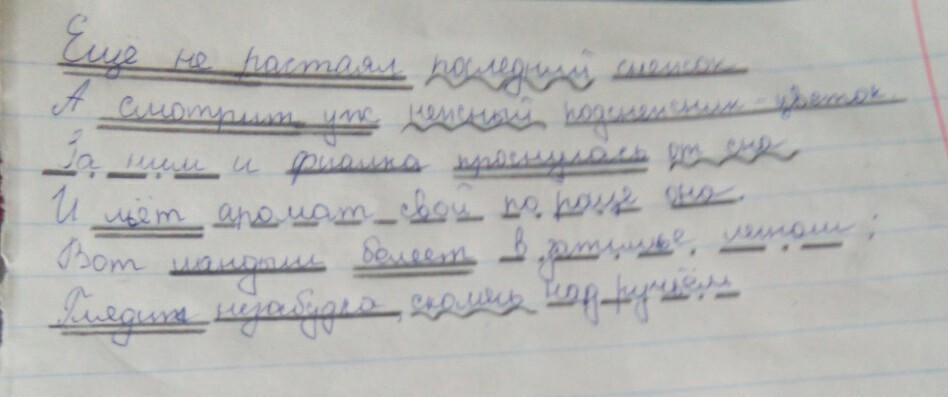 Ещё не растаял последний снежок
А смотрит уж нежный подснежник - цветок.
За ним и фиалка проснулась от сна
И льёт аромат свой по роще она.
Вот ландыш белеет в затишье лесном;
Глядит незабудка, склонясь над ручьём